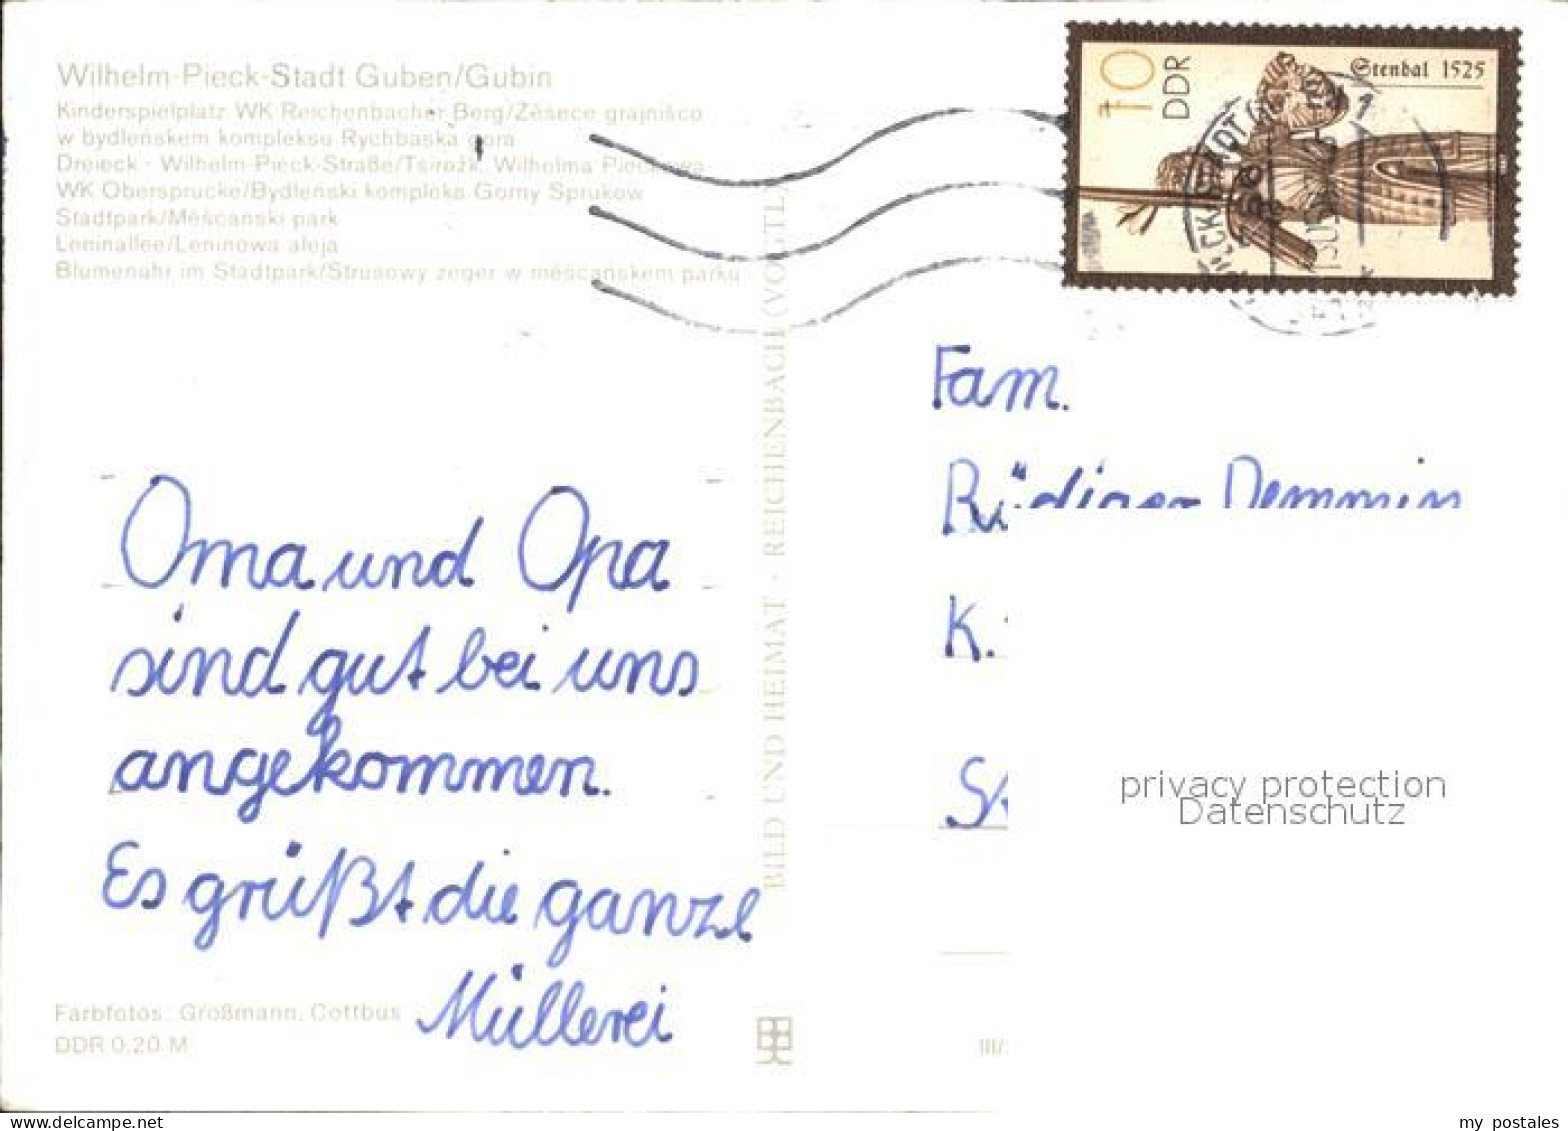 Wilhelm-Pieck-Stadt Guben/Gubin
Kinderspielplatz WK Reichenbacher Berg/Zěsece grajnišćo
w bydleńskem kompleksu Rychbaska gora
Dreieck - Wilhelm-Pieck-Straße/Tsirožk Wilhelma Pieckowa
WK Obersprucke/Bydleński kompleks Gorny Sprukow
Stadtpark/Měšćański park
Leninallee/Leninowa aleja
Blumenuhr im Stadtpark/Strusowy zeger w měšćańskem parku
10
DDR
Stendal 1525
Oma und Opa
sind gut bei uns
angekommen.
Es grüßt die ganze
Müllerei
Farbfotos: Großmann, Cottbus
DDR 0,20 M
BILD UND HEIMAT · REICHENBACH (VOGTL)
Fam.
Rüdiger Demmin
K.
III/
privacy protection
Datenschutz
my postales